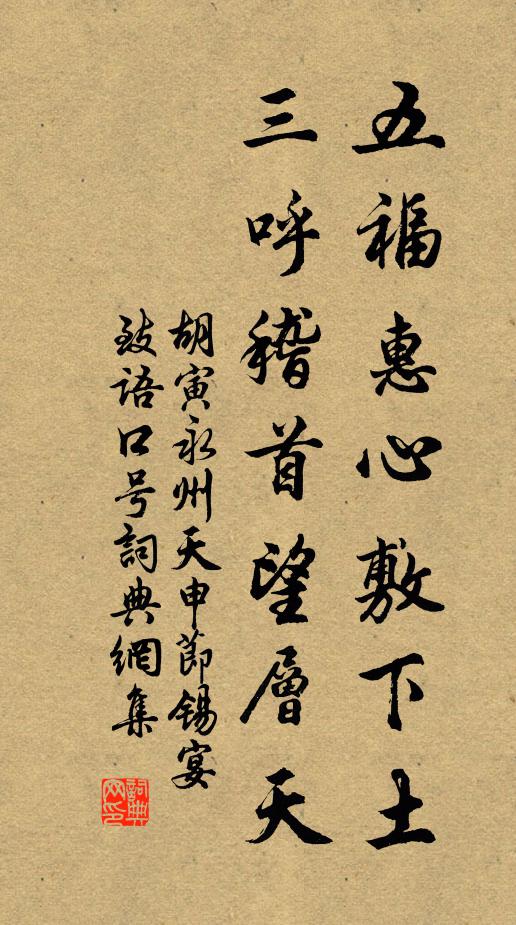 五福惠心敷下土
三呼稽首望層天
胡寅永州天申節錫宴
致語口号詞典網集
詞典网印